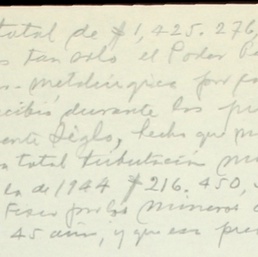 total de $1,425.276,
s tan solo el Poder
metalúrgica por
cibió, durante los
ente Siglo, hecho que
total tributación
la de 1944 $216.450,
Fisco por los mineros
45 años, y que esa